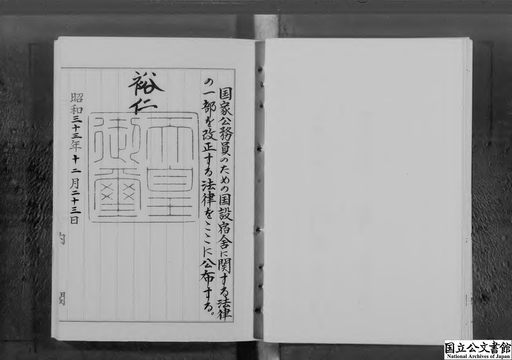 国家公務員のための国設宿舎に関する法律
の一部を改正する法律をここに公布する。
裕仁
天皇
御璽
昭和三十三年十二月二十三日
国立公文書館
National Archives of Japan